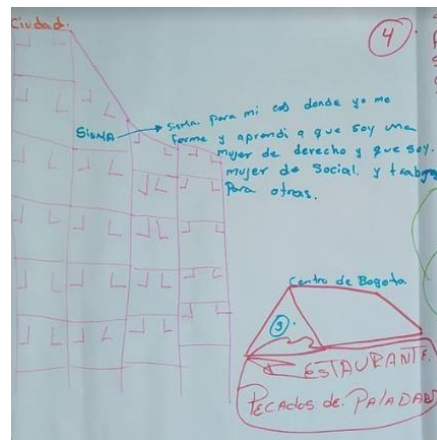 Ciudad.
4.
SISMA → Sisma para mi es donde yo me
forme y aprendi a que soy una
mujer de derecho y que soy.
mujer de Social. y trabajo
Para otras.
Centro de Bogota
3.
ESTAURANTE.
PECADOS de. PALADAR